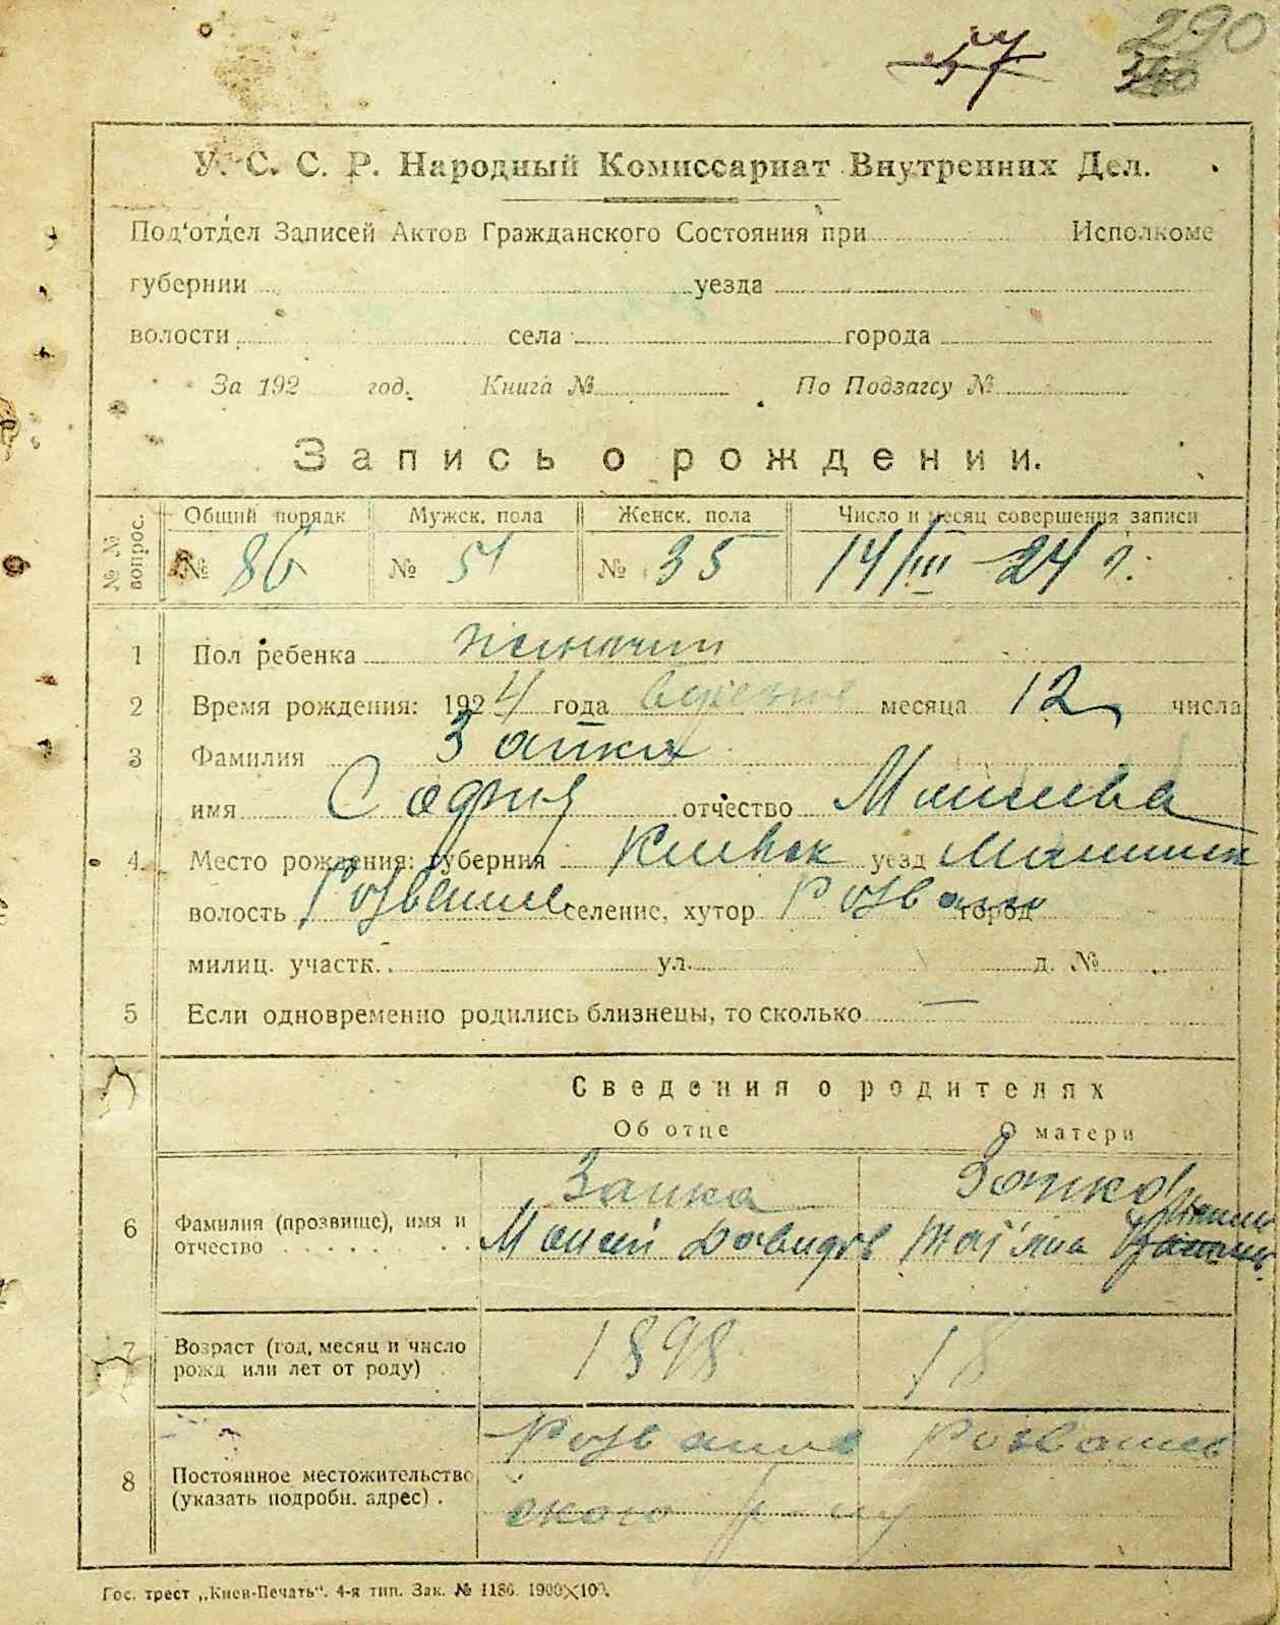 57 290
340
У. С. С. Р. Народный Комиссариат Внутренних Дел.
Под'отдел Записей Актов Гражданского Состояния при Исполкоме
губернии уезда
волости села города
За 192 год. Книга № По Подзагсу №
Запись о рождении.
№ № вопрос.
Общий порядк Мужск. пола Женск. пола Число и месяц совершения записи
№ 86 № 51 № 35 14/III 24 г.
1 Пол ребенка жіночий
2 Время рождения: 1924 года березня месяца 12 числа
3 Фамилия Заика
имя София отчество Моисеева
4 Место рождения: губерния Киевск уезд
волость Розважев селение, хутор Розваж город
милиц. участк. ул. д. №
5 Если одновременно родились близнецы, то сколько —
Сведения о родителях
Об отце О матери
Заика
6 Фамилия (прозвище), имя и отчество Моисей Давидов
7 Возраст (год, месяц и число рожд или лет от роду) 1898 18
8 Постоянное местожительство (указать подробн. адрес).
ского р-ну
Гос. трест „Киев-Печать". 4-я тип. Зак. № 1186. 1900×100.